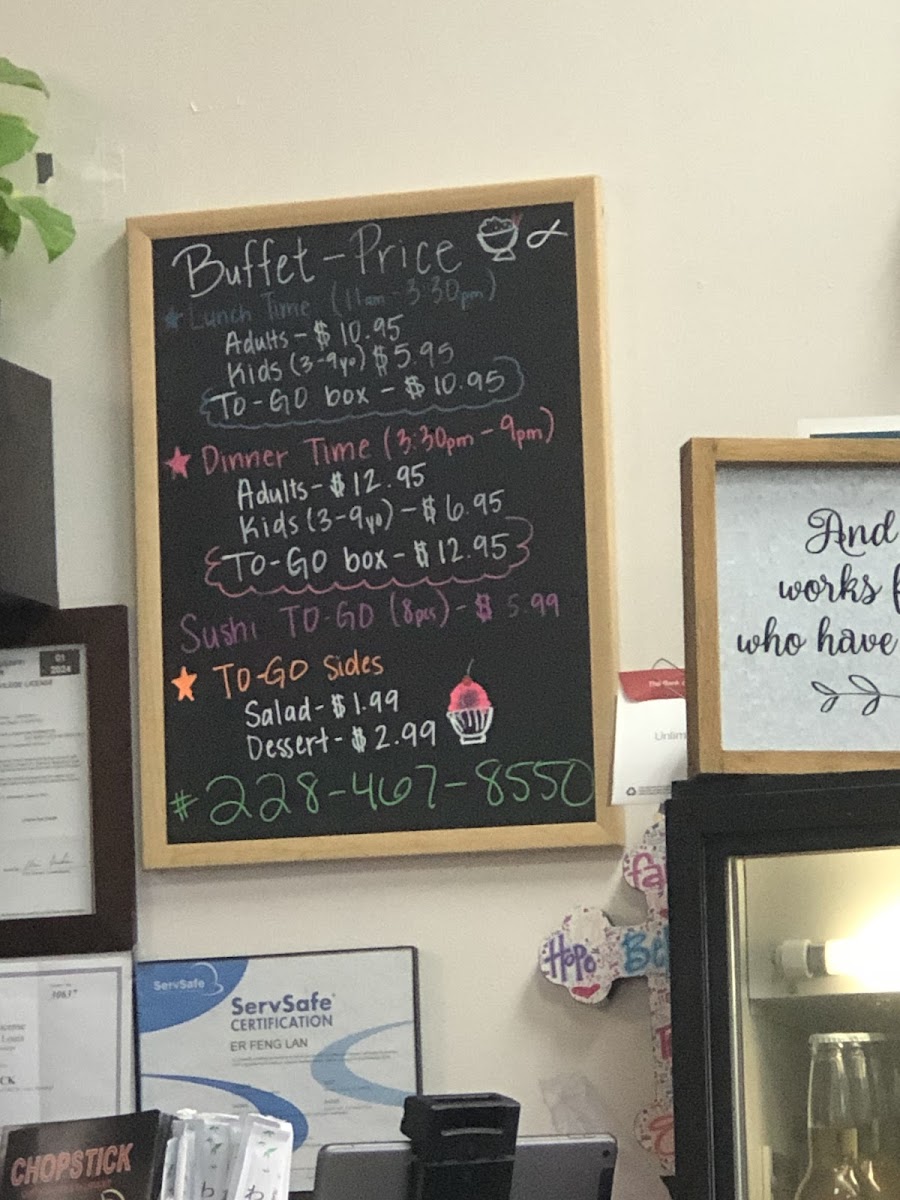 Buffet-Price
Lunch Time (11am-3:30pm)
Adults-$10.95
Kids (3-9yo) $5.95
TO-GO box - $10.95
Dinner Time (3:30pm-9pm)
Adults-$12.95
Kids (3-9yo)-$6.95
TO-GO box-$12.95
Sushi TO-GO (8pcs)-$5.99
TO-GO Sides
Salad-$1.99
Dessert-$2.99
#228-467-8550
And
works f
who have
01
2024
ServSafe
ServSafe
CERTIFICATION
ER FENG LAN
Hope
CHOPSTICK